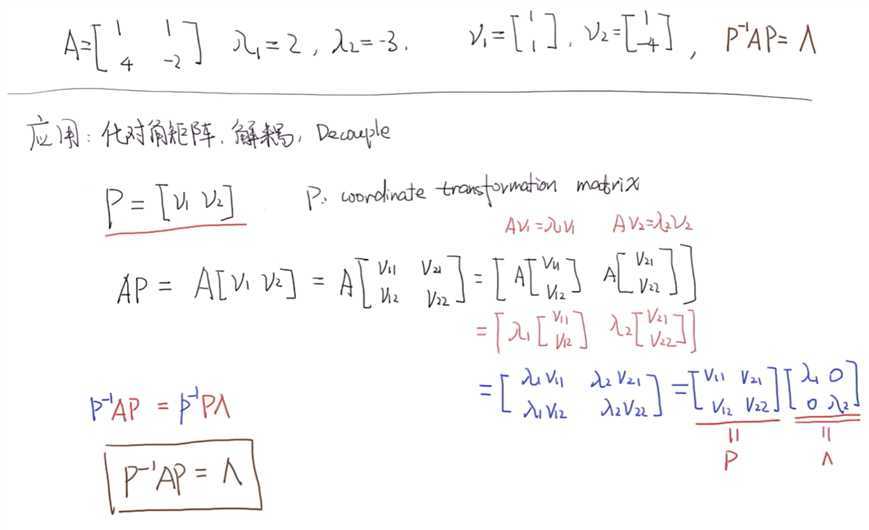 A = [1 1; 4 -2] λ₁ = 2, λ₂ = -3. v₁ = [1; 1], v₂ = [1; -4], P⁻¹AP = Λ
应用: 化对角矩阵, 解耦, Decouple
P = [v₁ v₂] P: coordinate transformation matrix
Av₁ = λ₁v₁ Av₂ = λ₂v₂
AP = A[v₁ v₂] = A[v₁₁ v₂₁; v₁₂ v₂₂] = [A[v₁₁; v₁₂] A[v₂₁; v₂₂]]
= [λ₁[v₁₁; v₁₂] λ₂[v₂₁; v₂₂]]
= [λ₁v₁₁ λ₂v₂₁; λ₁v₁₂ λ₂v₂₂] = [v₁₁ v₂₁; v₁₂ v₂₂][λ₁ 0; 0 λ₂]
P⁻¹AP = P⁻¹PΛ
= P = Λ
P⁻¹AP = Λ